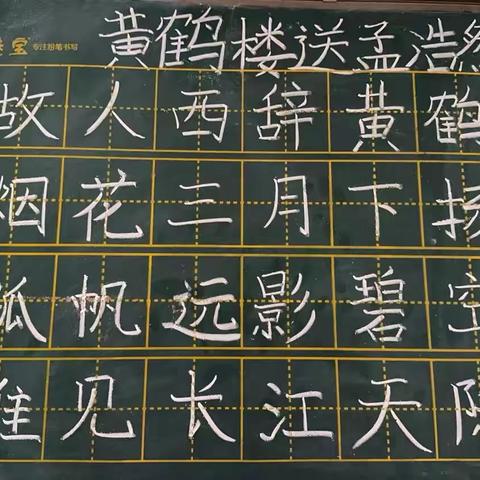 宝 专注粉笔书写
黄鹤楼送孟浩然
故人西辞黄鹤
烟花三月下扬
孤帆远影碧空
见长江天际